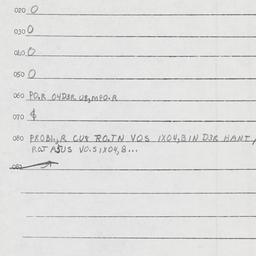 020 0
030 0
040 0
050 0
060 PO.R O4D3R U8,MPO.R
070 $
080 PROBI,,R CU8 RO.TN VOS IX04,8 IN D3R HANT,
ROT A$US VO.S IX04,8...
082